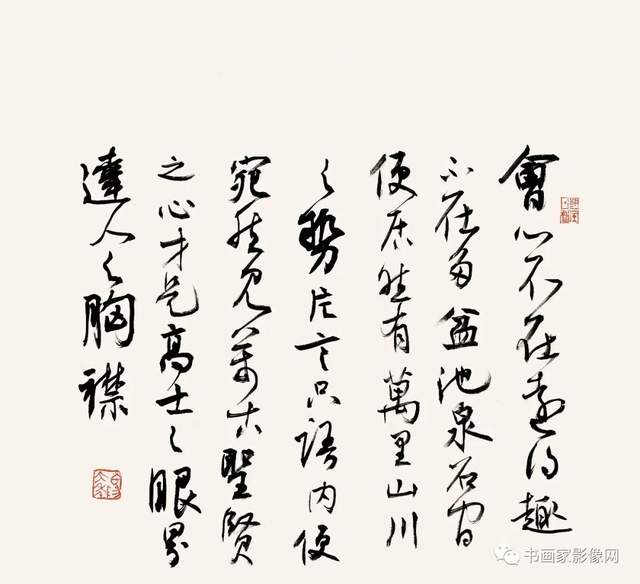 會心不在遠得趣
不在多盆池泉石間
便居然有萬里山川
之勢片言只語內便
宛然見萬古聖賢
之心才是高士之眼界
達人之胸襟
书画家影像网